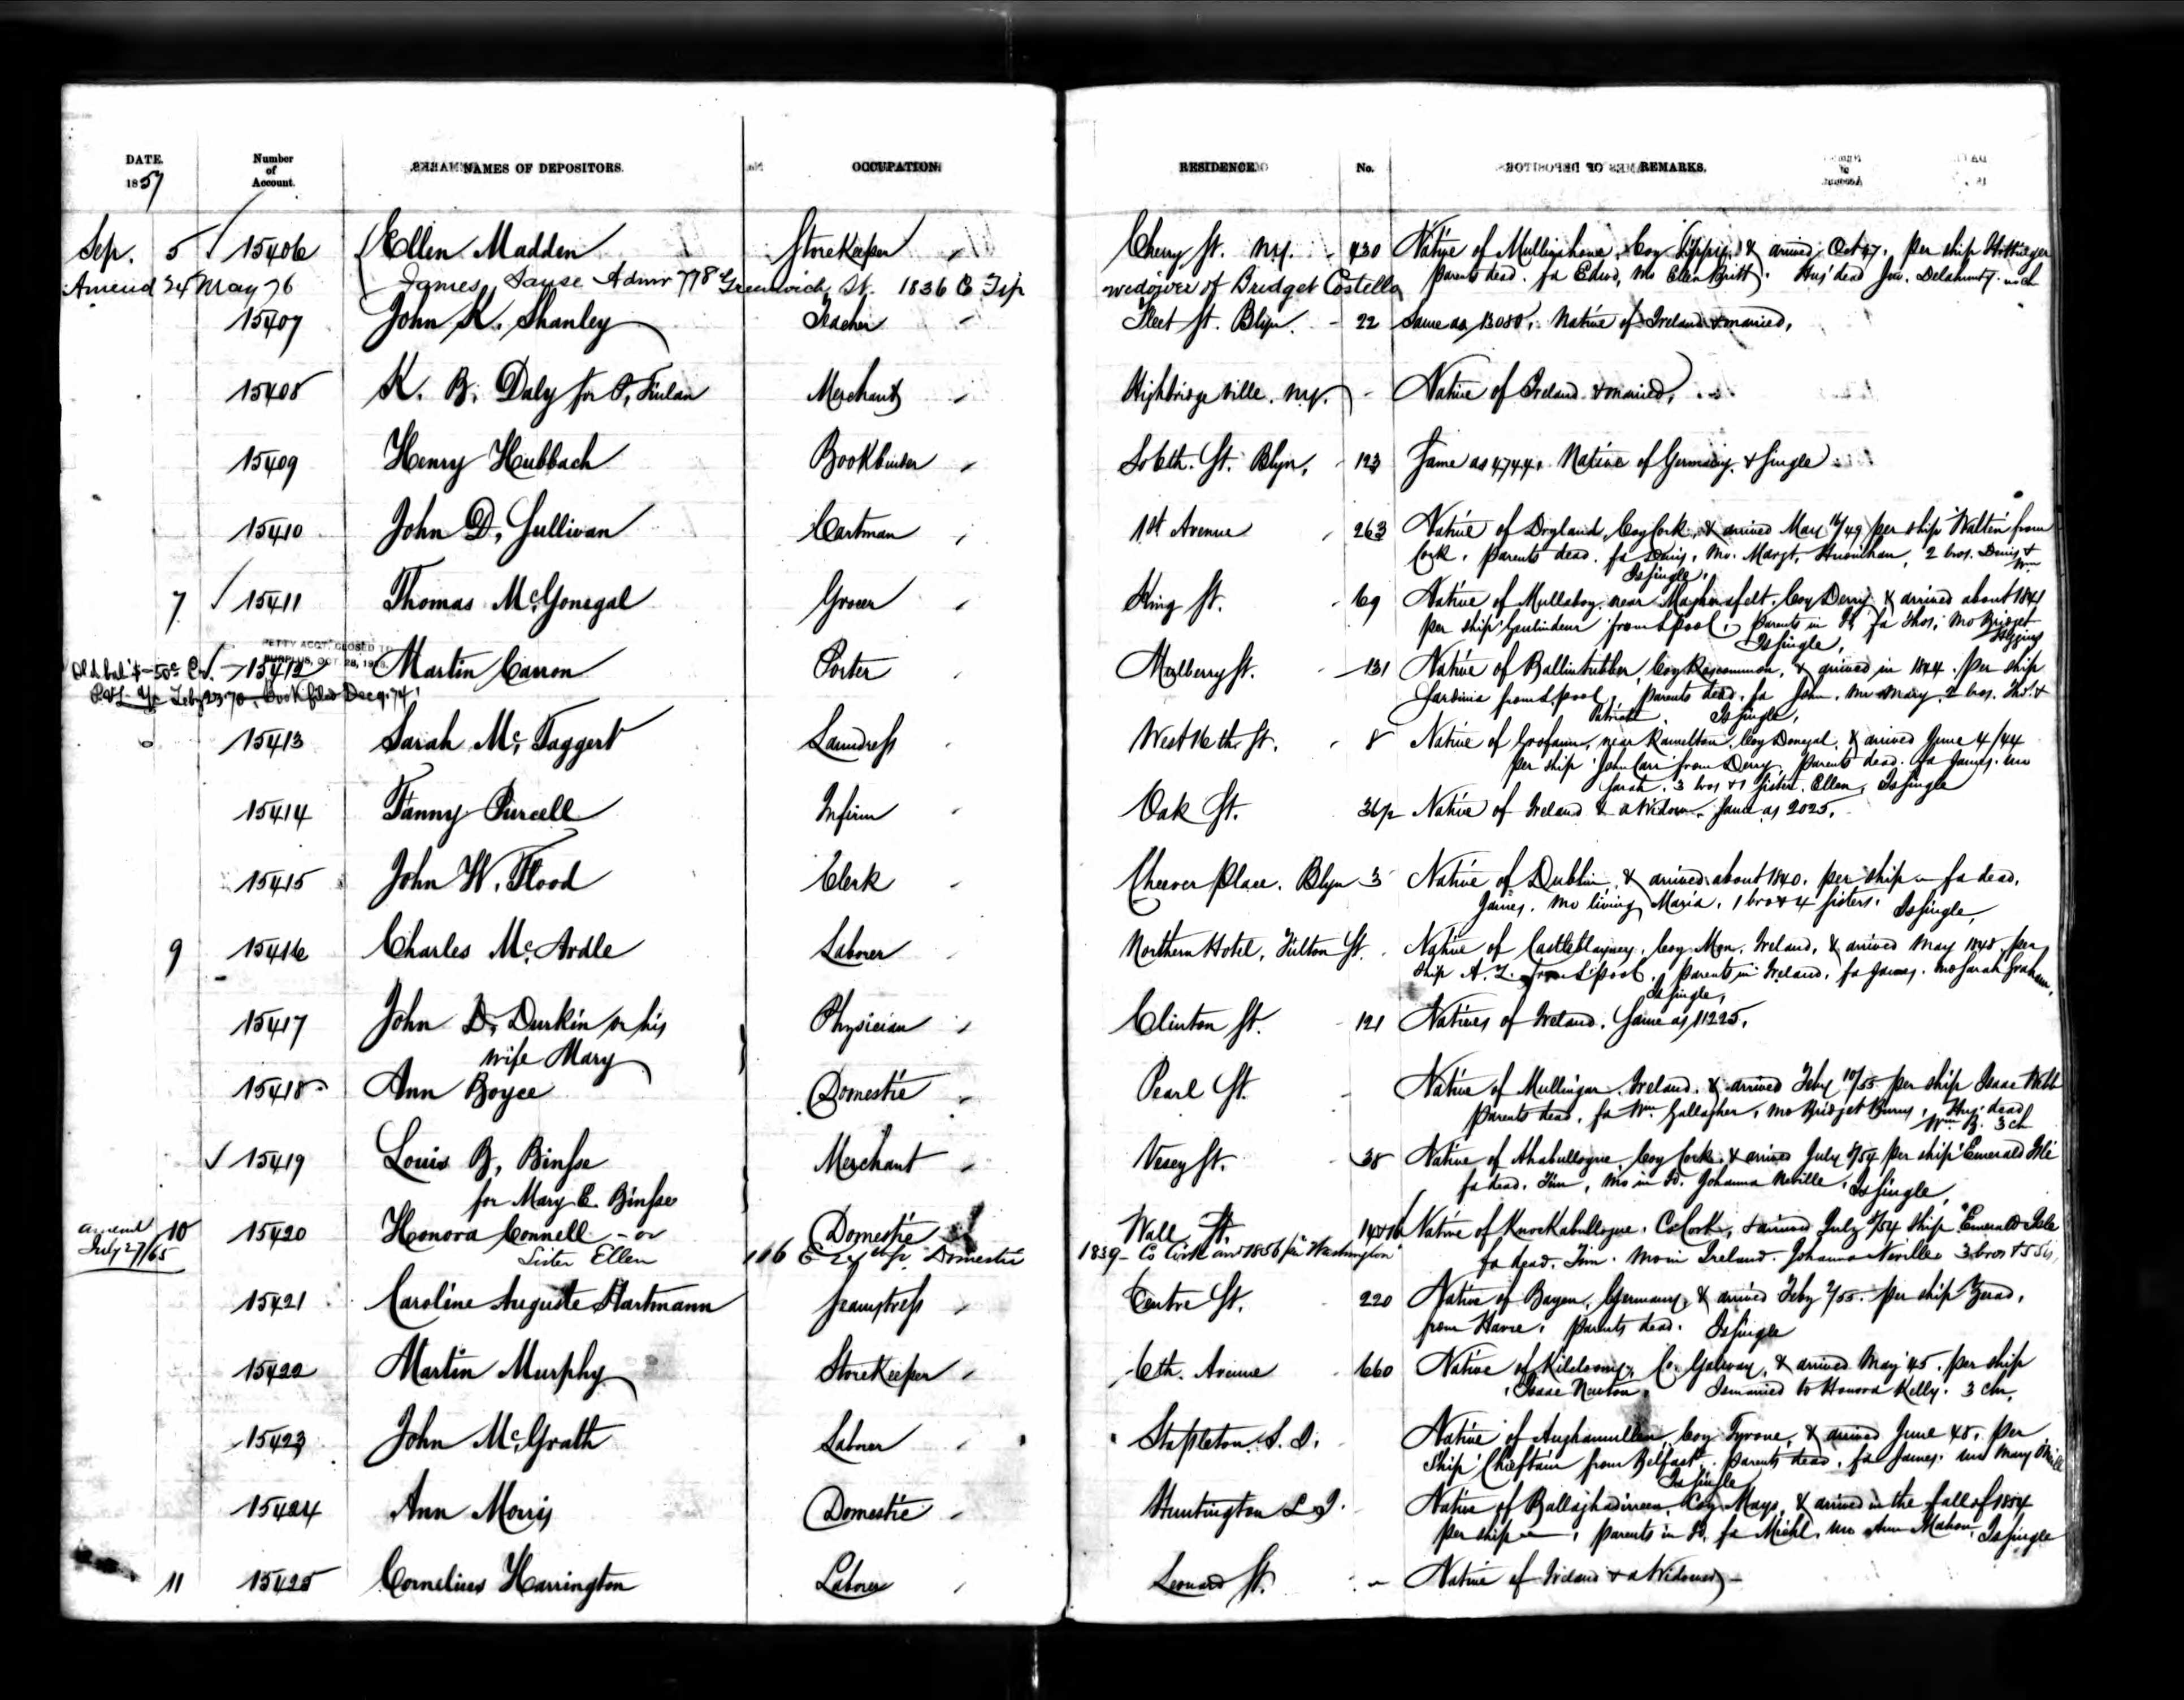 DATE. Number of Account. NAMES OF DEPOSITORS. OCCUPATION. RESIDENCE. No. REMARKS.
1857
Sep. 5 15406 Ellen Madden Storekeeper Cherry St. N.Y. 430 Native of Mullinahone, Coy Tippry, & arrived Oct 47, per ship
Parents dead. fa Edwd, Mo Ellen Britt. Hus' dead Jno. Delahunty. no ch
Amend 24 May 76 James Admr 778 Greenwich St. 1836 C Tip widower of Bridget Costello
15407 John K. Shanley Teacher Fleet St. Blyn. 22 Same as 13080. Native of Ireland & married.
15408 K. B. Daly for Merchant Highbridgeville. N.Y. - Native of Ireland & married.
15409 Henry Hubbach Bookbinder So 6th. St. Blyn. 123 Same as 4744. Native of Germany. & Single
15410 John D. Sullivan Cartman 1st Avenue 263 Native of Coy Cork, & arrived May 16/49 per ship 'Walten' from
Cork. parents dead. fa Denis, Mo. Margt. 2 bros. Denis & Wm
Is single.
7 15411 Thomas McGonegal Grocer King St. 69 Native of Mullaboy, near Magherafelt. Coy Derry & arrived about 1841
per ship from Lpool. Parents in Id, fa Thos. Mo Bridget
Is single.
PETTY ACCT. CLOSED TO
SURPLUS, OCT. 28,
15412 Martin Carron Porter Mulberry St. 131 Native of Ballintubber, Coy Roscommon, & arrived in 1844. per ship
Feby 23 70. Book filed Dec 9. 74 Sardinia from Lpool, parents dead. fa John. Mo Mary. 2 bros. Thos. &
Patrick. Is single.
15413 Sarah McTaggert Laundress West 16th. St. 8 Native of near Ramelton, Coy Donegal, & arrived June 4/44
per ship 'John Carr' from Derry. parents dead. fa James. mo
Sarah. 3 bros & 1 sister. Ellen, Is single
15414 Fanny Purcell Infirm Oak St. 36½ Native of Ireland & a Widow. Same as 2025.
15415 John W. Flood Clerk Cheever Place. Blyn 3 Native of Dublin, & arrived about 1840. per ship — fa dead.
James. Mo living Maria, 1 bro & 4 sisters. Is single.
9 15416 Charles McArdle Laborer Northern Hotel, Fulton St. Native of Castleblayney. Coy Mon. Ireland, & arrived May 1848 per
ship A. Z. from L'pool. parents in Ireland. fa James. Mo Sarah Graham,
Is single.
15417 John D. Durkin or his Physician Clinton St. 121 Natives of Ireland. Same as 11225.
wife Mary
15418 Ann Boyce Domestic Pearl St. - Native of Mullingar. Ireland. & arrived Feby 10/55 per ship Isaac Webb
Parents dead, fa Wm. Gallagher, Mo Bridget Burns, Hus' dead
Wm B. 3 ch
15419 Louis B. Binsse Merchant Vesey St. 38 Native of Ahabullogue, Coy Cork, & arrived July 4/54 per ship 'Emerald Isle
for Mary E. Binsse fa dead. Tim, Mo in Id. Johanna Neville, Is single.
Amend July 27/65 10 15420 Honora Connell - or Domestic Wall St. 14 & 16 Native of Knockabullogue. Co Cork, & arrived July 4/54 ship "Emerald Isle
Sister Ellen 116 E Domestic 1839 - Co Cork arrd 1856 per "Washington" fa dead. Tim. Mo in Ireland. Johanna Neville 3 bros & 5 sis
15421 Caroline Auguste Hartmann Seamstress Centre St. 220 Native of Bayen, Germany, & arrived Feby 2/55. per ship
from Havre. parents dead. Is single
15422 Martin Murphy Storekeeper 6th. Avenue 660 Native of Co. Galway, & arrived May '45. per ship
'Isaac Newton. Is married to Honora Kelly. 3 chn.
15423 John McGrath Laborer Stapleton. S. I. Native of Aughamullen, Coy Tyrone, & arrived June 48. per
ship Chieftain from Belfast. parents dead. fa James. mo Mary
Is single
15424 Ann Morris Domestic Huntington L. I. Native of Ballaghadireen, Coy Mayo, & arrived in the fall of 1854
per ship — , parents in Id. fa Michl. Mo Ann Mahon, Is single
11 15425 Cornelius Harrington Laborer Leonard St. - Native of Ireland & a Widower -